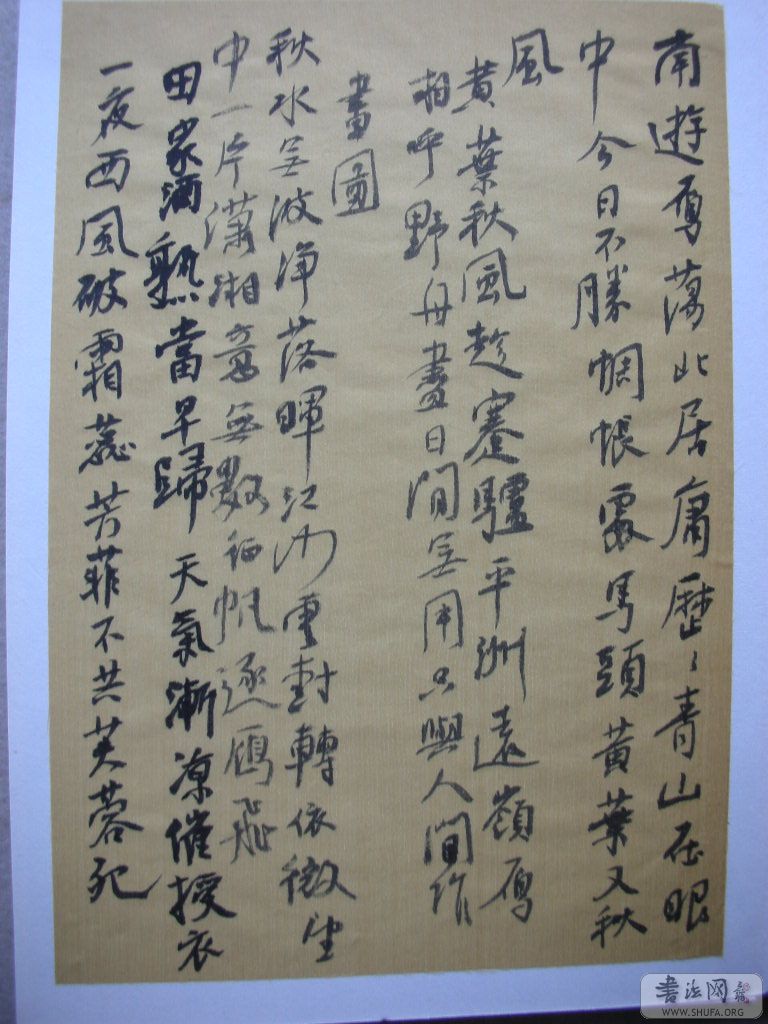 南遊雁蕩此居庸歷々青山在眼
中今日不勝惆悵處馬頭黃葉又秋
風
黃葉秋風趁蹇驢平洲遠嶺雁
相呼野舟盡日閒無用只與人間作
畫圖
秋水無波淨落暉江雲樹轉依微
中一片瀟湘意無數征帆逐雁飛
田家酒熟當早歸天氣漸凉催授衣
一夜西風破霜蕊芳菲不共芙蓉死
書法网
WWW.SHUFA.ORG